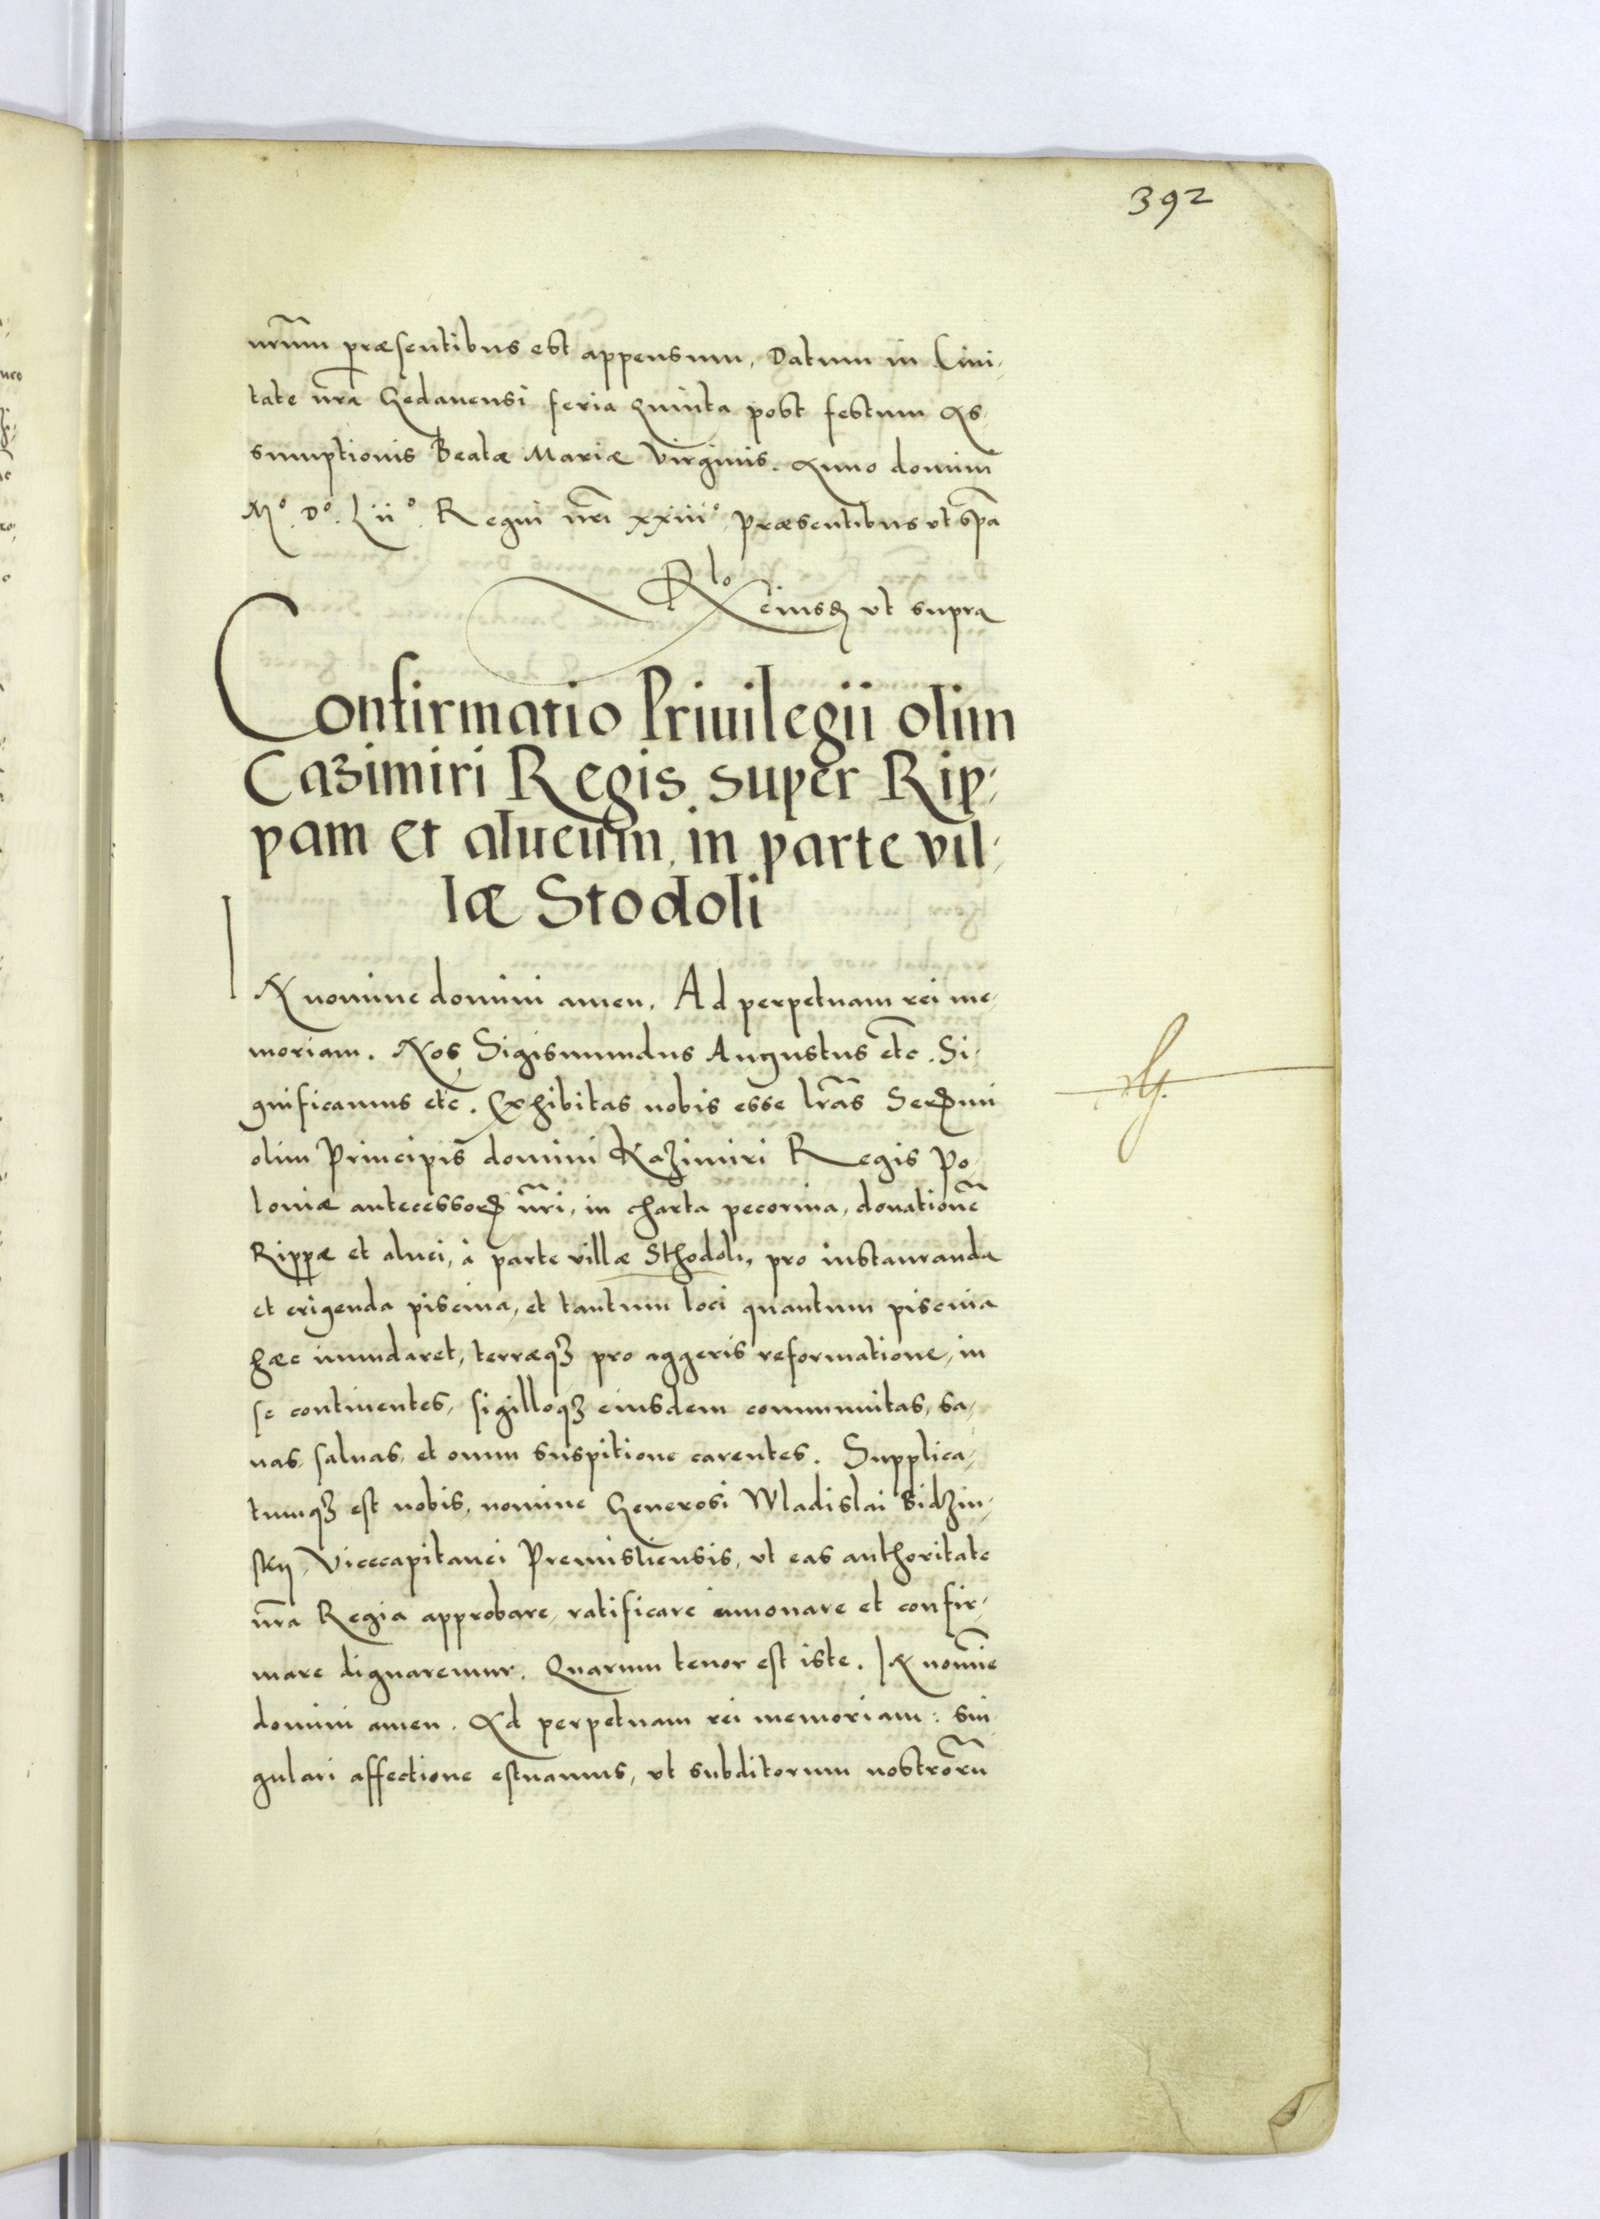 392
nr̃um præsentibus est appensum, Datum in Ciui,
tate nr̃a Gedanensi feria quinta post festum As,
sumptionis Beatæ Mariæ Virginis. Anno domini
Mº. Dº. Liiº. Regni nr̃i xxiiiº. Præsentibus vt sp̃a
Rlo eiusđ vt supra
Confirmatio Priuilegii olim
Cazimiri Regis super Rip,
pam et alueum, in parte vil,
læ Stodoli
IN nomine domini amen. Ad perpetuam rei me,
moriam. Nos Sigismundus Augustus etc̃. Si,
gnificamus etc̃. Exhibitas nobis esse lr̃as Serᵐⁱ
olim Principis domini Kazimiri Regis Po,
loniæ antecessorꝭ nr̃i, in charta pecorina, donationẽ
Rippæ et aluei, à parte villæ Sthodoli, pro instauranda
et erigenda piscina, et tantum loci quantum piscina
hæc inundaret, terræqꝫ pro aggeris reformatione, in
se continentes, sigilloqꝫ eiusdem communitas, sa,
nas, saluas, et omni suspitione carentes. Supplica,
tumqꝫ est nobis, nomine Generosi Wladislai Bidzin,
skij, Vicecapitanei Premisliensis, vt eas authoritate
nr̃a Regia approbare, ratificare innouare et confir,
mare dignaremur. Quarum tenor est iste. IN nomĩe
domini amen. Ad perpetuam rei memoriam: Sin
gulari affectione estuamus, vt subditorum nostrorũ